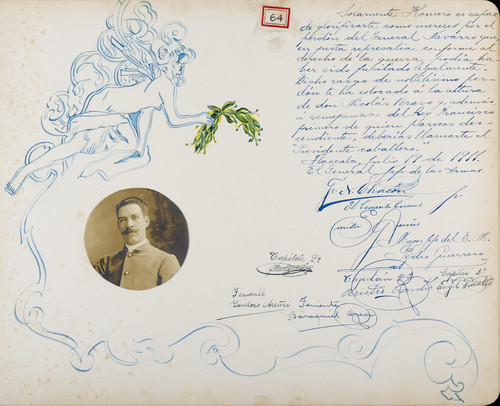 64
Solamente Homero es capaz
de glorificarte como mereces por el
perdón del General Navarro que
en justa represalia, conforme al
derecho de la guerra, podía ha
ber sido fusilado legalmente.
Dicho rasgo de nobilísimo per-
dón te ha colocado a la altura
de don Nicolás Bravo y, además
á semejanza del Rey Francisco
primero de quien pareces des-
cendiente, deberías llamarte el
"Presidente caballero."
Tlaxcala, Julio 19 de 1911.
El General Jefe de las Armas.
Chacón
El Teniente Coronel
Mayor Jefe del E. M.
Pedro Guerrero
Capitán 2º
Capitán 2º
Capitán 2º
Teniente
Isidoro
Teniente